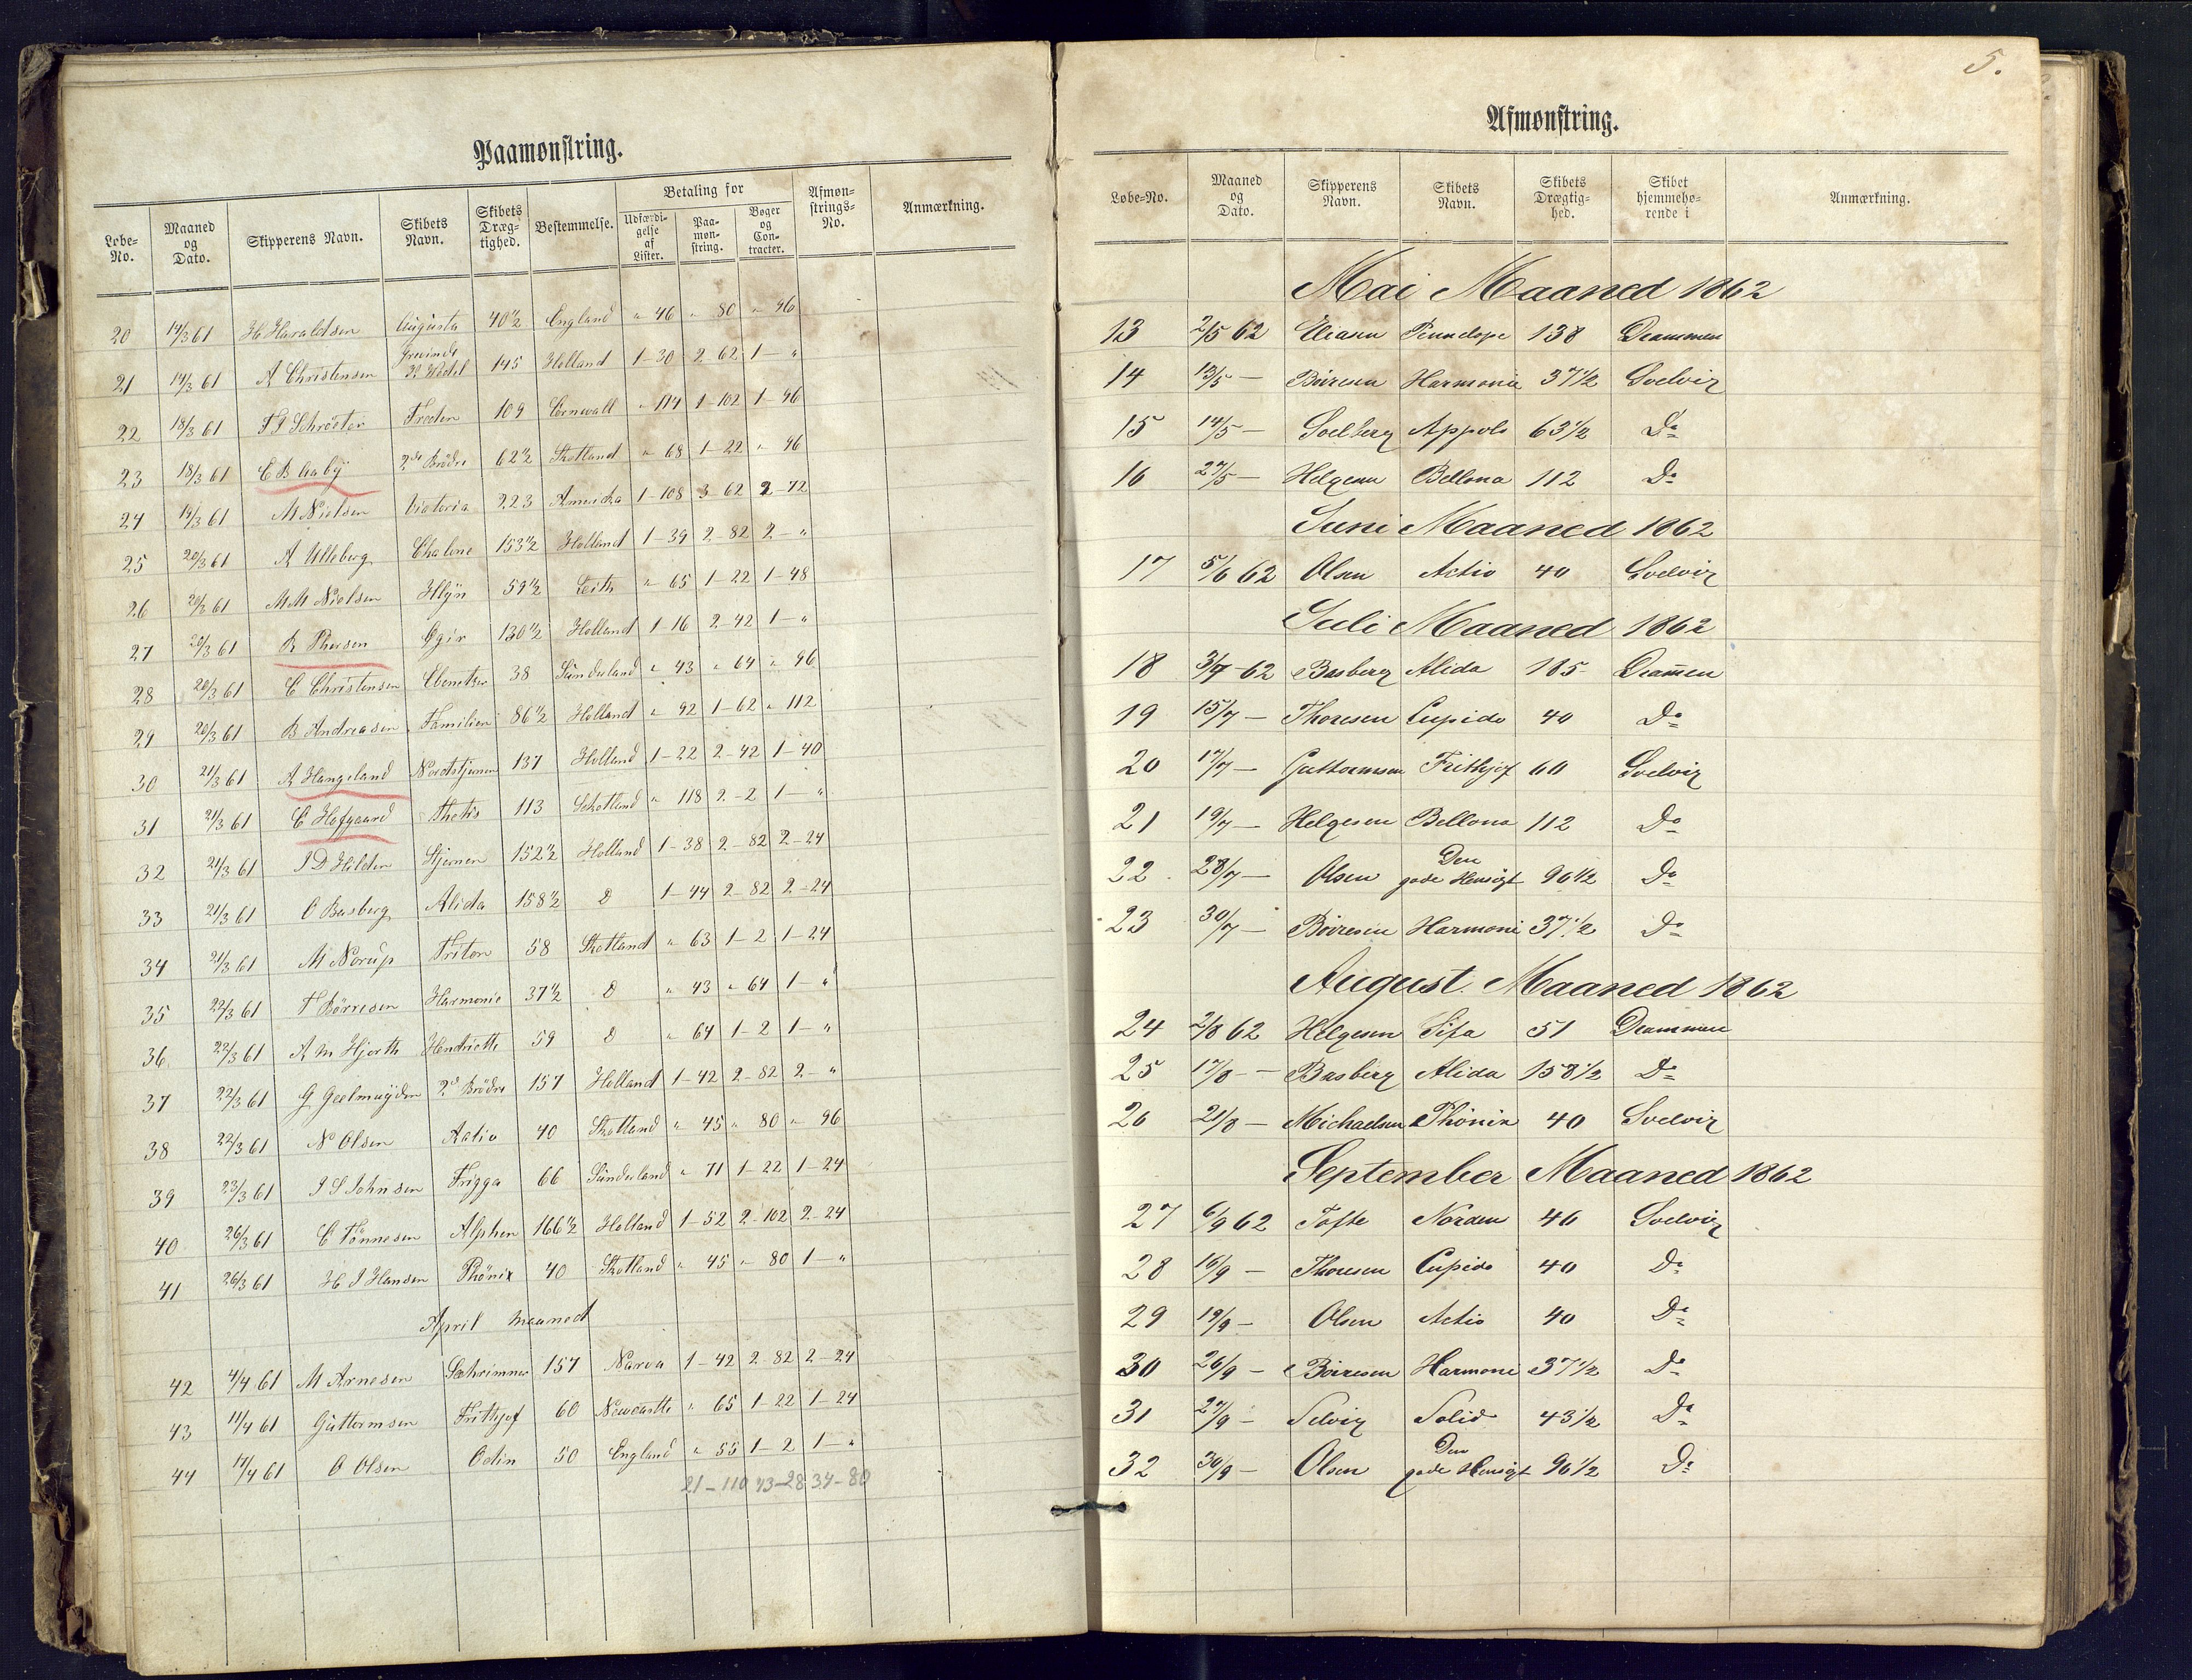 Paamønstring.
Løbe-No. Maaned og Dato. Skipperens Navn. Skibets Navn. Skibets Dræg-tighed. Bestemmelse. Betaling for Udfærdi-gelse af Lister. Paa-møn-string. Bøger og Con-tracter. Afmøn-strings-No. Anmærkning.
20 14/3 61 H Haraldsen Augusta 40½ England " 46 " 80 " 96
21 14/3 61 A Christensen Grevinde Wedel 145 Holland 1-30 2-62 1-"
22 18/3 61 Schrøter 109 Cornwall "-114 1-102 1-96
23 18/3 61 C B Aaby 2de Brødre 62½ Skotland " 68 1-22 " 96
24 19/3 61 M Nielsen Victoria 223 Amerika 1-108 3-62 2-72
25 20/3 61 A Ulleberg 153½ Holland 1-39 2-82 2-"
26 20/3 61 M M Nielsen 59½ Leith " 65 1-22 1-48
27 20/3 61 130½ Holland 1-16 2-42 1-"
28 20/3 61 C Christensen Ebenetzer 38 Sünderland " 43 " 64 " 96
29 20/3 61 B Andreasen Familien 86½ Holland " 92 1-62 " 112
30 21/3 61 A Hangeland Nordstjernen 137 Holland 1-22 2-42 1-40
31 21/3 61 C Hofgaard 113 Schotland " 118 2-2 1-"
32 21/3 61 Stjernen 152½ Holland 1-38 2-82 2-24
33 21/3 61 O Basberg Alida 158½ D 1-44 2-82 2-24
34 21/3 61 M Norup Triton 58 Skotland " 63 1-2 1-24
35 22/3 61 T Börresen Harmonie 37½ D " 43 " 64 1-"
36 22/3 61 A M Hjorth Hendriette 59 D " 64 1-2 1-"
37 22/3 61 G Geelmuÿden 2de Brödre 157 Holland 1-42 2-82 2-"
38 22/3 61 N Olsen Actio 40 Skotland " 45 " 80 " 96
39 23/3 61 Johnsen Frigga 66 Sünderland " 71 1-22 1-24
40 26/3 61 C Tönnesen Alphen 166½ Holland 1-52 2-102 2-24
41 26/3 61 H J Hansen Phönix 40 Skotland " 45 " 80 1-"
April Maaned
42 4/4 61 M Arnesen Sæhrimner 157 Narva 1-42 2-82 2-24
43 11/4 61 Güttormsen Frithjof 60 Newcastle " 65 1-22 1-24
44 17/4 61 O Olsen Odin 50 England " 55 1-2 1-"
21-110 43-28 34-80
5.
Afmønstring.
Løbe-No. Maaned og Dato. Skipperens Navn. Skibets Navn. Skibets Drægtig-hed. Skibet hjemmehø-rende i Anmærkning.
Mai Maaned 1862
13 2/5 62 Eliasen Pennelope 138 Drammen
14 13/5 — Böiresen Harmonie 37½ Svelvig
15 14/5 — Soelberg Appolo 63½ Do
16 27/5 — Helgesen Bellona 112 Do
Juni Maaned 1862
17 5/6 62 Olsen Actio 40 Svelvig
Juli Maaned 1862
18 3/7-62 Basberg Alida 185 Dram̄en
19 15/7 — Thoresen Cupido 40 Do
20 17/7 — Guttormsen Frithjof 60 Svelvig
21 19/7 — Helgesen Bellona 112 Do
22 28/7 — Olsen Den gode Hensigt 96½ Do
23 30/7 — Böiresen Harmoni 37½ Do
August Maaned 1862
24 2/8 62 Helgesen Sifa 51 Drammen
25 17/8 — Basberg Alida 158½ Do
26 21/8 — Michaelsen Phönix 40 Svelvig
September Maaned 1862
27 6/9 62 Tofte Norden 46 Svelvig
28 16/9 — Thoresen Cupido 40 Do
29 19/9 — Olsen Actio 40 Do
30 26/9 — Böiresen Harmoni 37½ Do
31 27/9 — Selvig Solid 43½ Do
32 30/9 — Olsen Den gode Hensigt 96½ Do